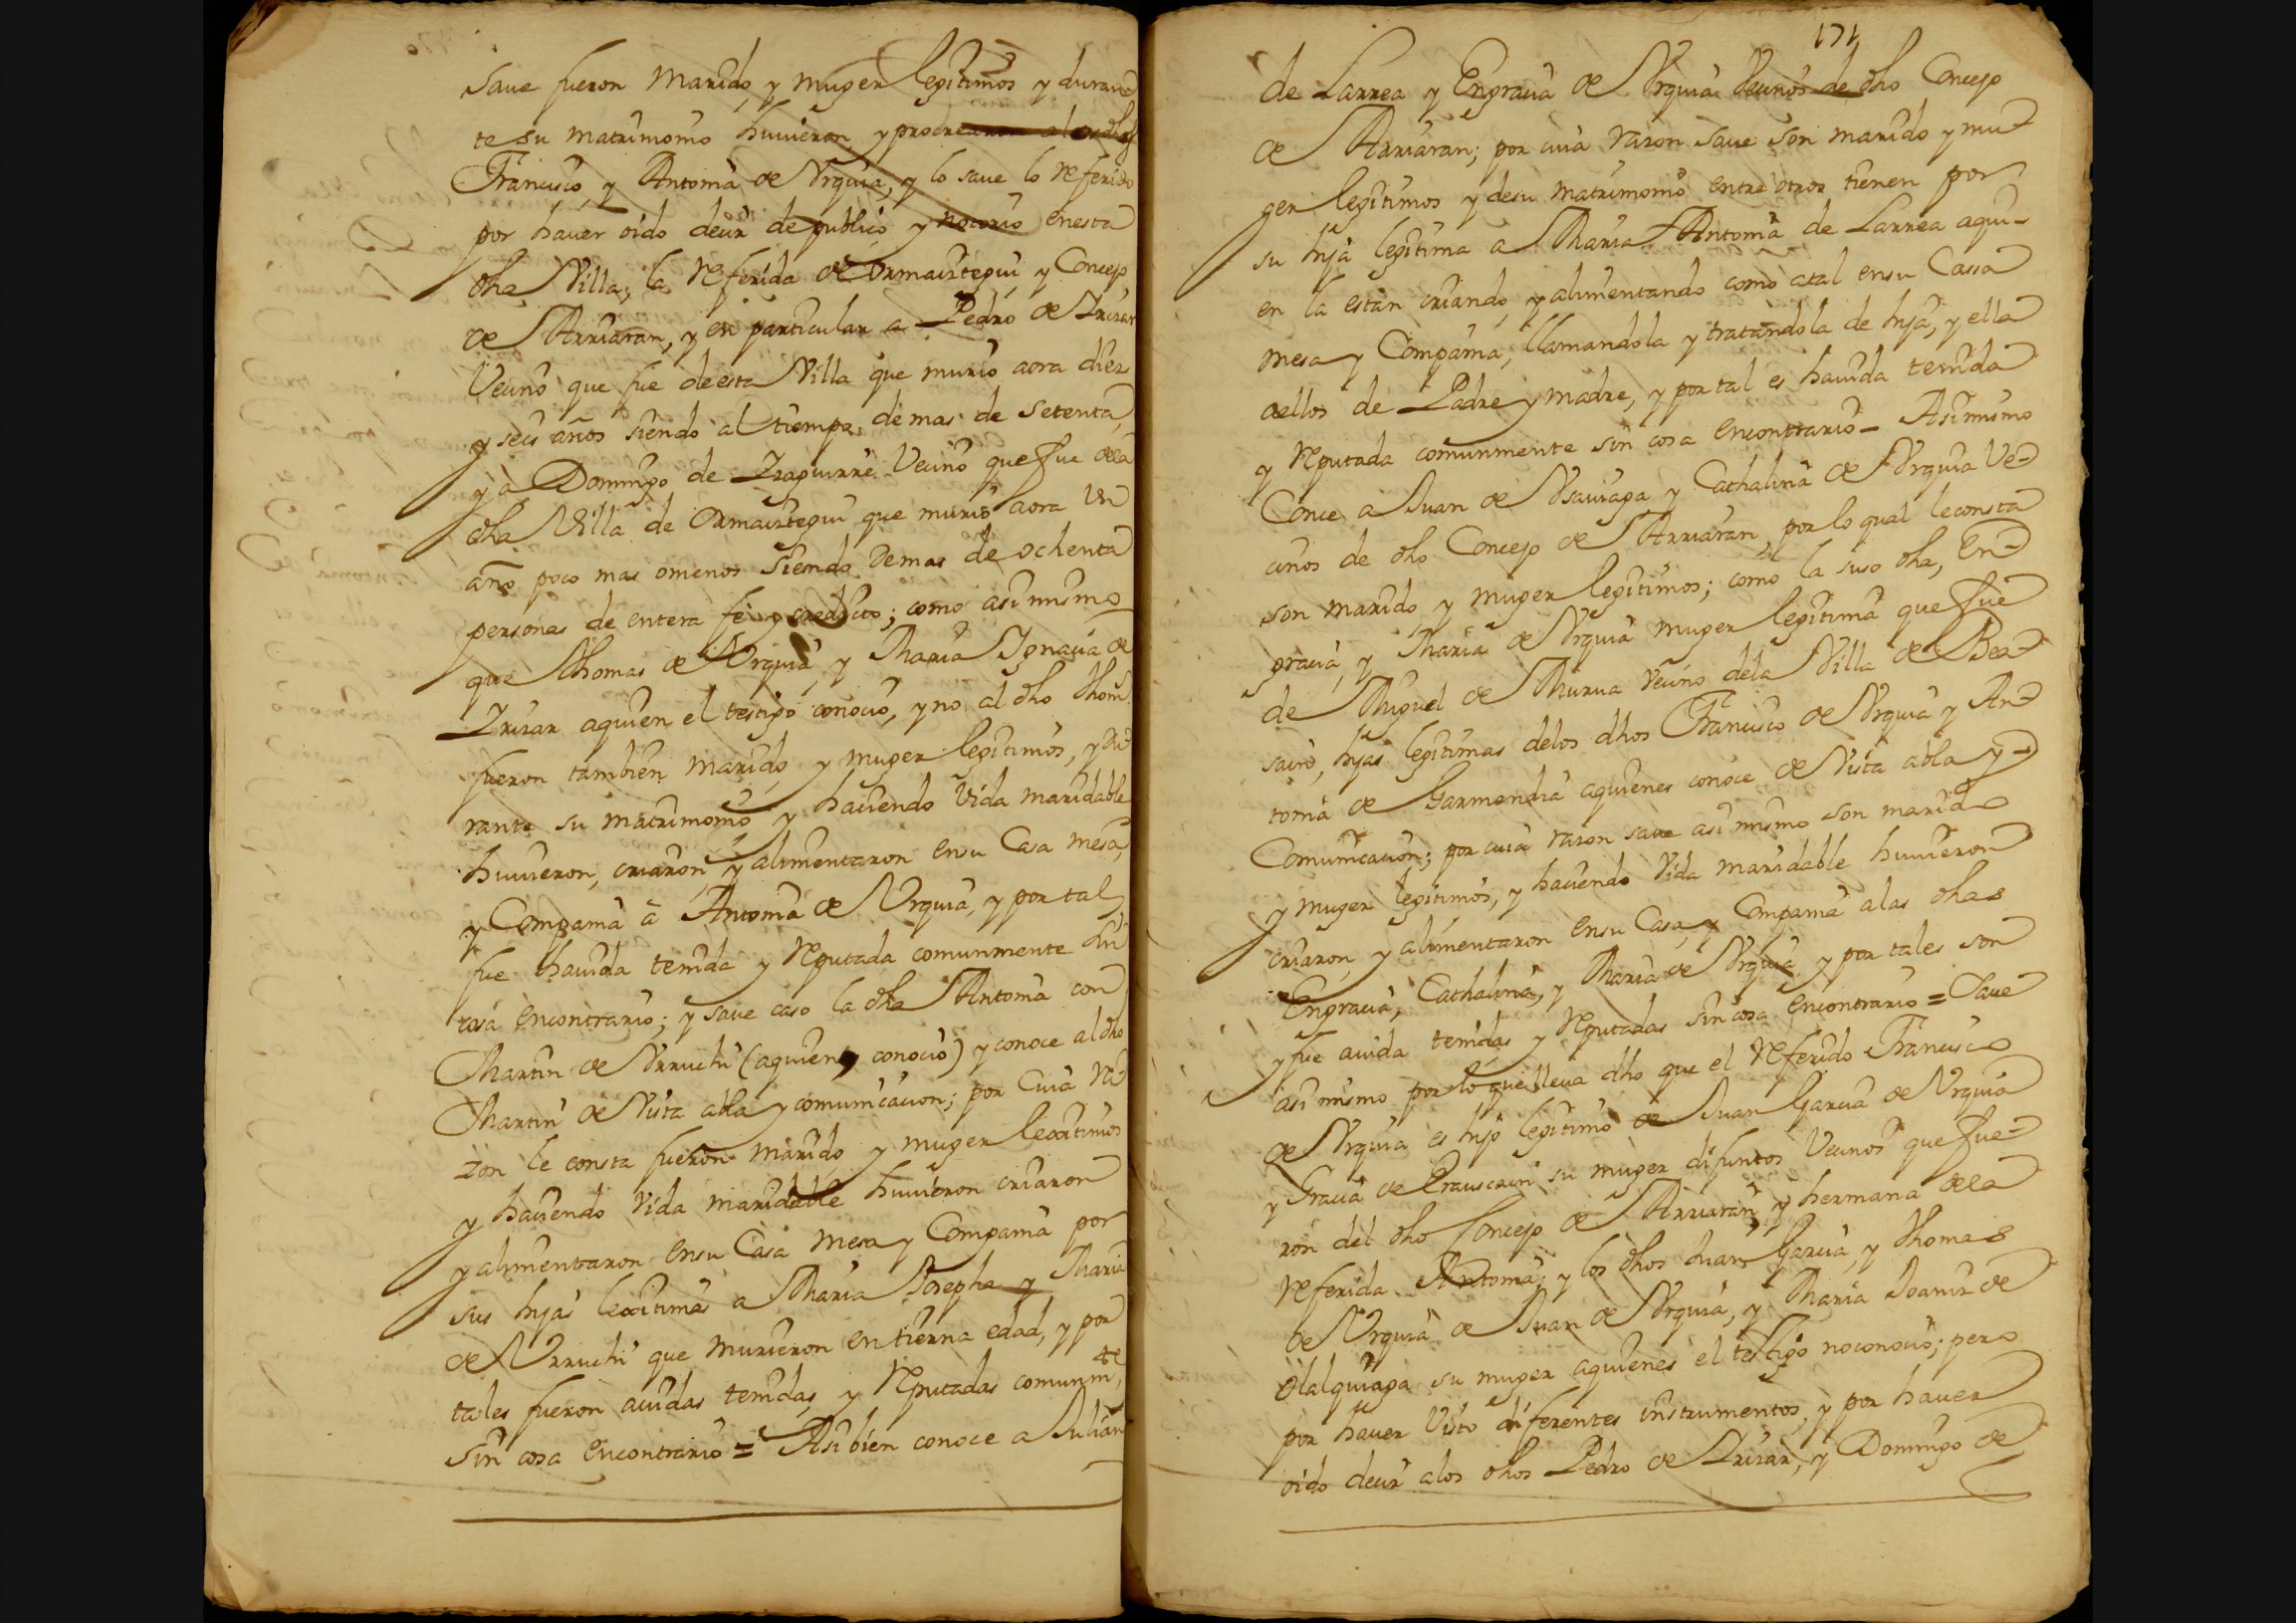 saue fueron marido, y muger legitimos y duran-
te su matrimonio huuieron, y procrearon a los dhos
Francisco, y Antonia de Vrquia, y lo saue lo referido
por hauer oido decir de publico y notorio en esta
dha Villa, la referida de Ormaiztegui, y Concejo
de Arriaran, y en particular a Pedro de Irizar
Vecino que fue de esta Villa que murio aora diez
y seis años siendo al tiempo de mas de setenta,
y à Domingo de Izaguirre Vecino que fue dela
dha Villa de Ormaiztegui que murió aora un
año poco mas omenos siendo demas de ochenta
personas de entera fe y credito; como asi mismo
que Thomas de Vrquia, y Maria Ignacia de
Irizar aquien el testigo conocio, y no al dho Thom.
fueron tambien marido, y muger legitimos, y du-
rante su matrimonio y haciendo vida maridable
huuieron, criaron y alimentaron en su Casa mesa,
y Compania à Antonia de Vrquia, y por tal
fue hauida tenida y reputada comunmente sin
cosa en contrario; y saue caso la dha Antonia con
Martin de Vrruchi (aquien conocio) y conoce al dho
Martin de vista abla y comunicacion; por cuia ra-
zon le consta fueron marido, y muger lexitimos
y haciendo vida maridable huuieron criaron
y alimentaron en su Casa mesa y Compania por
sus hijas lexitimas a Maria Josepha y Maria
de Vrruchi que murieron en tierna edad, y por
tales fueron auidas tenidas, y reputadas comunm.te
sin cosa en contrario = Asi bien conoce a Julian
171
de Larrea y Engracia de Vrquia Vecinos de dho Concejo
de Arriaran; por cuia razon saue son marido y mu-
ger legitimos y de su matrimonio entre otros tienen por
su hija legitima a Maria Antonia de Larrea aqui-
en la estan criando, y alimentando como atal en su Cassa
mesa y Compania, llamandola y tratandola de hija, y ella
aellos de Padre y madre, y por tal es hauida tenida
y reputada comunmente sin cosa en contrario - Asimismo
Conoce a Juan de Vsauraga y Cathalina de Vrquia Ve-
cinos de dho Concejo de Arriaran, por lo qual le consta
son marido, y muger legitimos; como la suso dha, En-
gracia, y Maria de Vrquia muger legitima que fue
de Miguel de Murua vecino dela Villa de Bea-
sain, hijas legitimas delos dhos Francisco de Vrquia y An-
tonia de Garmendia aquienes conoce de vista abla y
Comunicacion; por cuia razon saue asi mismo son marido
y muger legitimos, y haciendo vida maridable huuieron
criaron, y alimentaron en su Casa, y Compania alas dhas
Engracia, Cathalina, y Maria de Vrquia y por tales son
y fue auida tenidas y reputadas sin cosa en contrario = Saue
asi mismo por lo que lleua dho que el referido Francisco
de Vrquia es hijo legitimo de Juan Garcia de Vrquia
y Gracia de Erauscain su muger difuntos Vecinos que fue-
ron del dho Concejo de Arriaran, y hermana dela
referida Antonia; y los dhos Juan Garcia, y Thomas
de Vrquia de Juan de Vrquia, y Maria Joaniz de
Olalquiaga su muger aquienes el testigo no conocio; pero
por hauer visto diferentes instrumentos, y por hauer
oido decir alos dhos Pedro de Irizar, y Domingo de